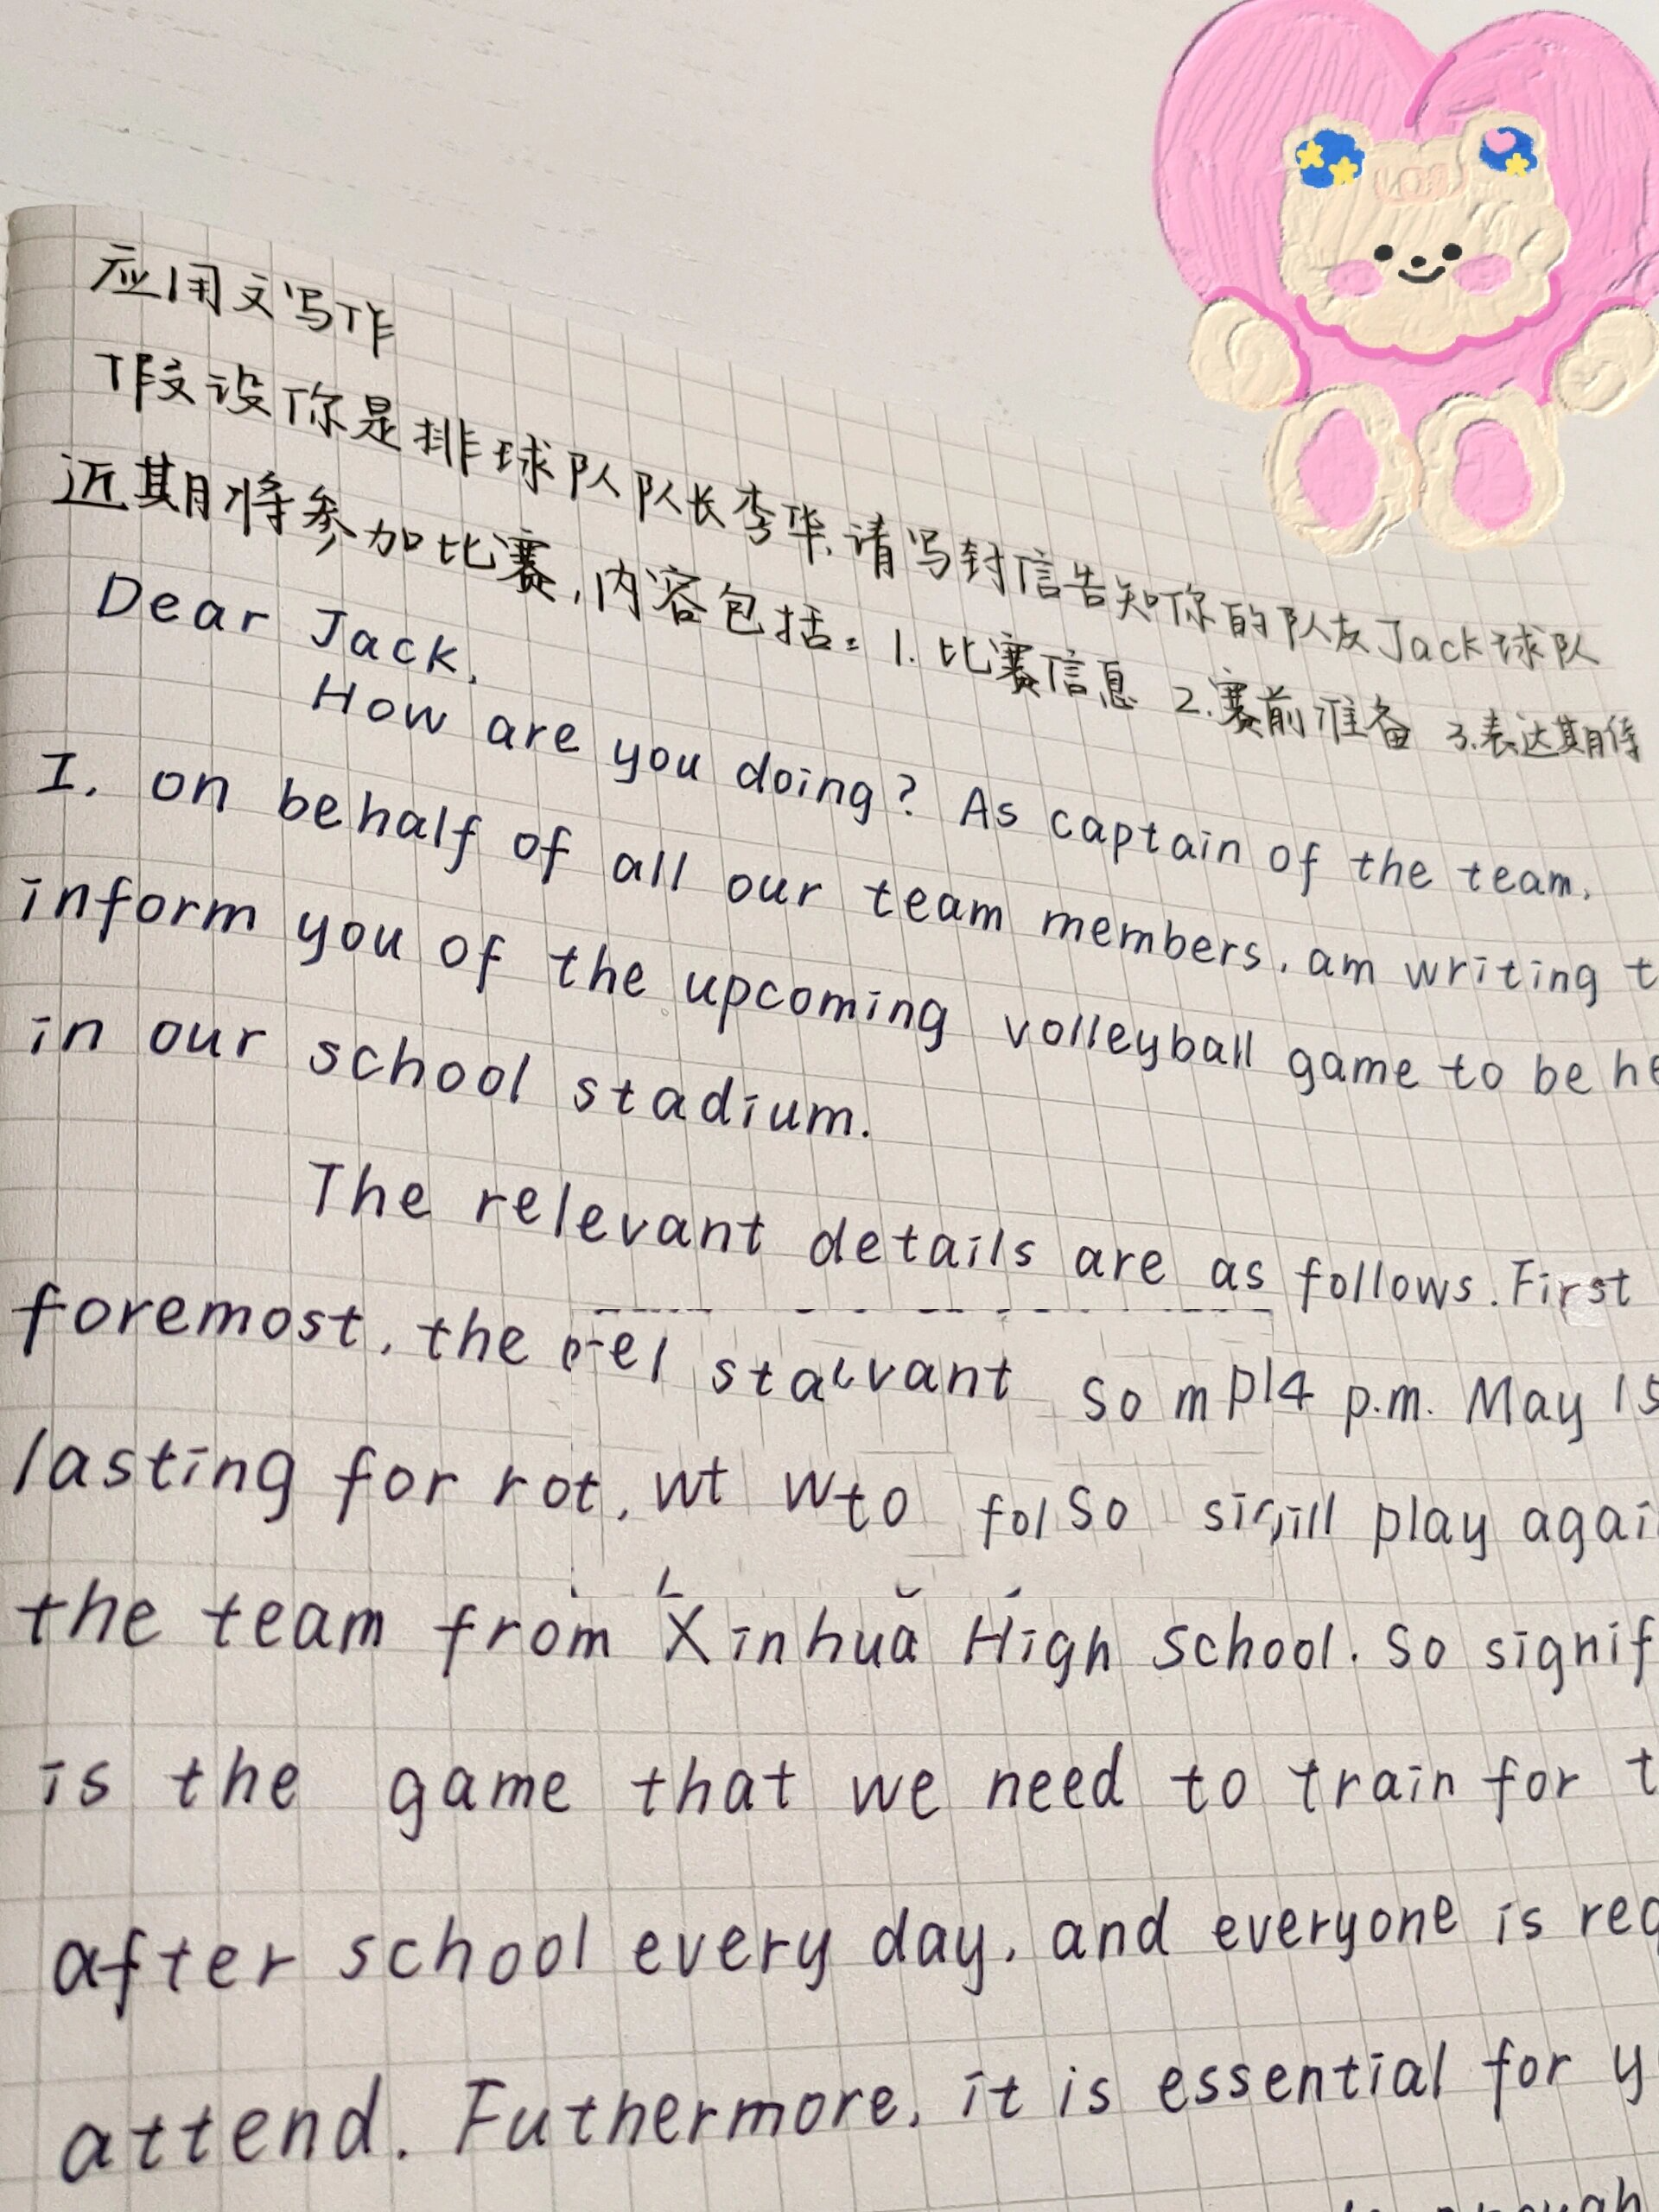 应用文写作
假设你是排球队队长李华,请写封信告知你的队友Jack球队
近期将参加比赛,内容包括:1.比赛信息 2.赛前准备 3.表达期待
Dear Jack,
How are you doing? As captain of the team,
I, on behalf of all our team members, am writing t
inform you of the upcoming volleyball game to be he
in our school stadium.
The relevant details are as follows. First
foremost, the p.m. May 15
lasting for play agai
the team from Xinhua High School. So signif
is the game that we need to train for t
after school every day, and everyone is req
attend. Futhermore, it is essential for y